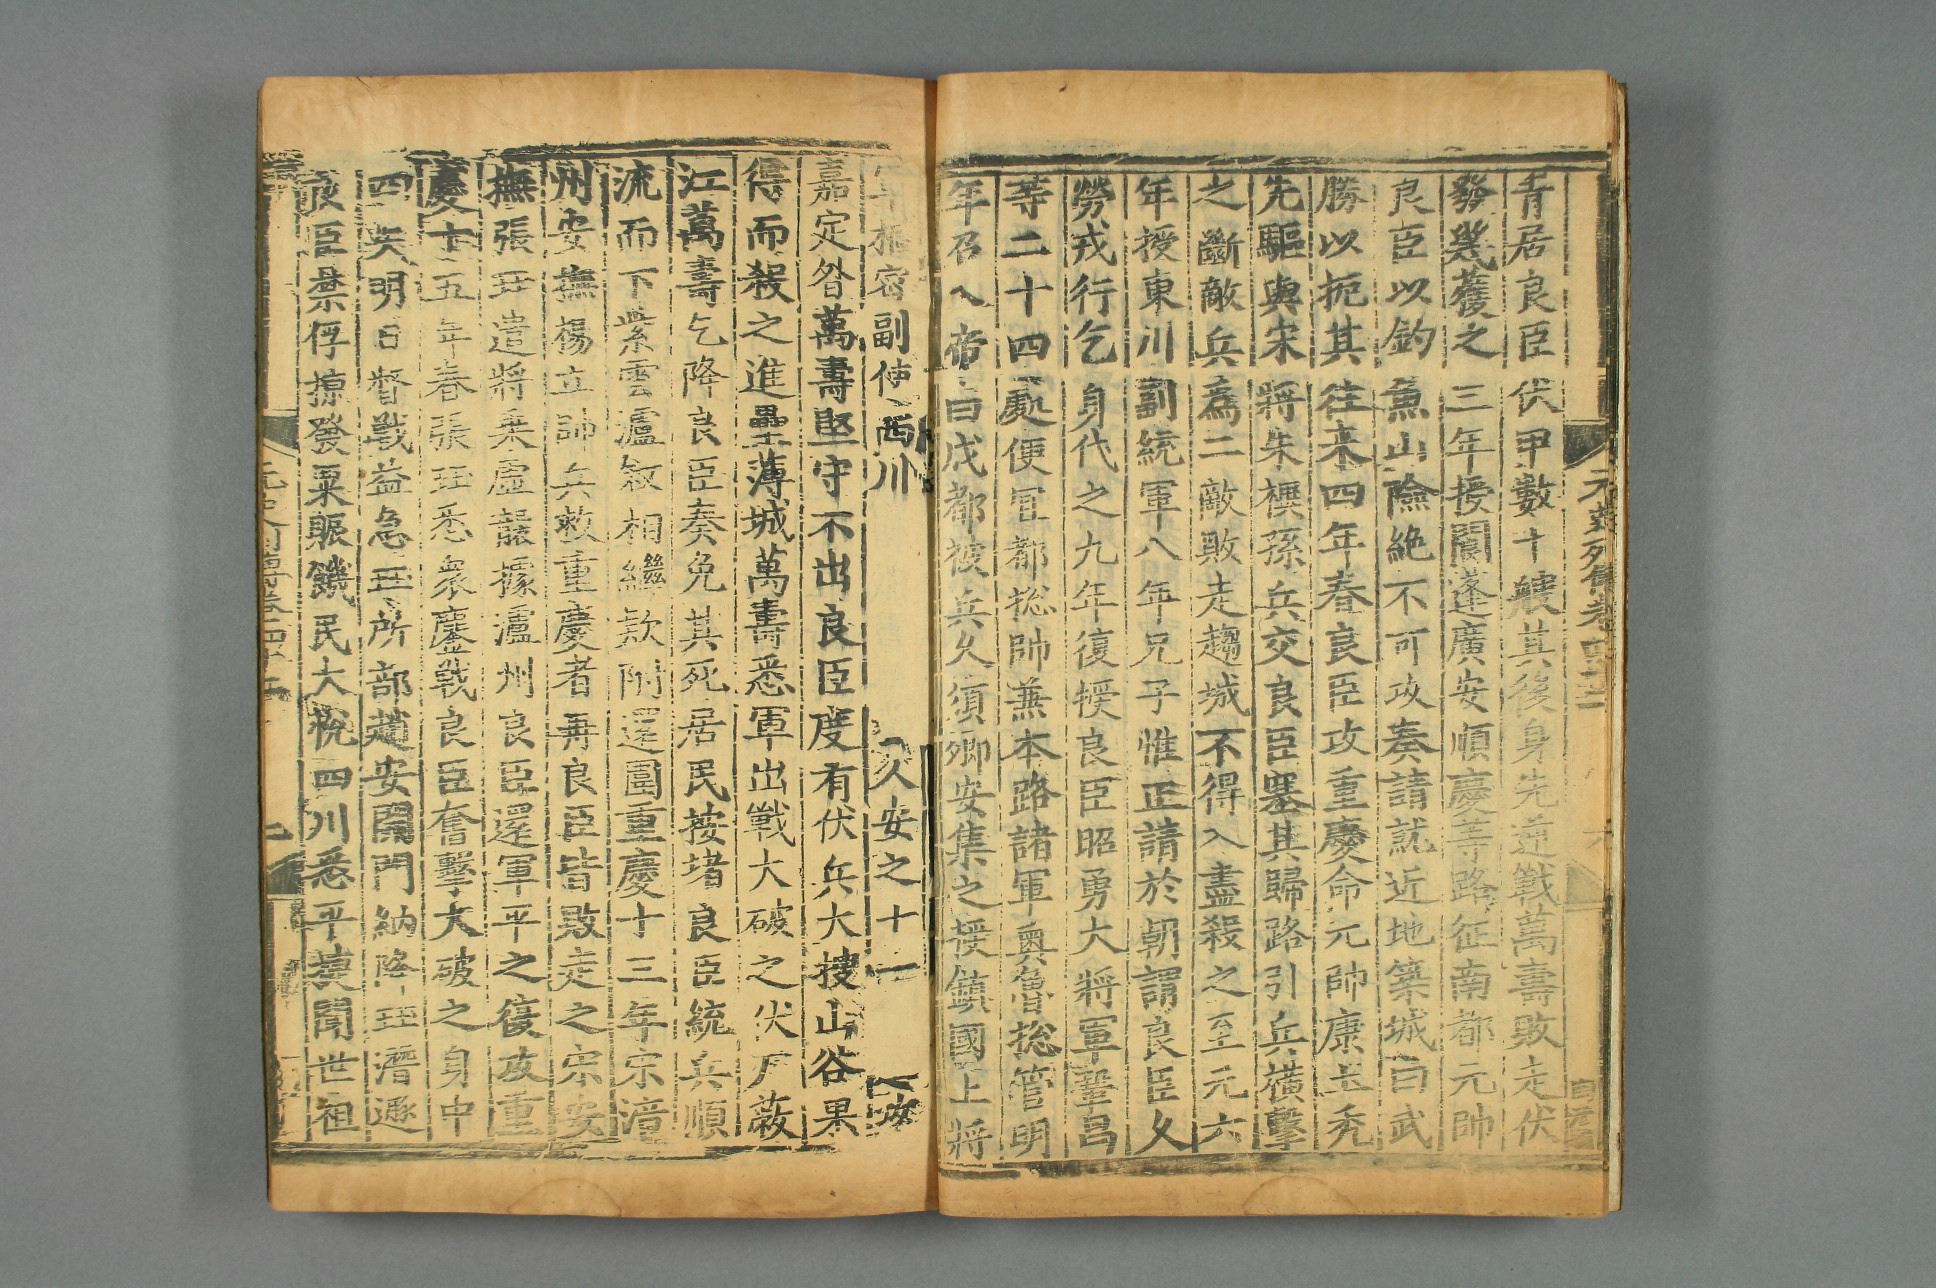 青居良臣伏甲數十艘其後身先逆戰萬壽敗走伏
發幾獲之三年授閬蓬廣安順慶等路征南都元帥
良臣以釣魚山險絶不可攻奏請就近地築城曰武
勝以扼其徃来四年春良臣攻重慶命元帥康土秃
先驅與宋將朱禩孫兵交良臣塞其歸路引兵橫擊
之斷敵兵爲二敵敗走趨城不得入盡殺之至元六
年授東川副統軍八年兄子惟正請於朝謂良臣乆
勞戎行乞身代之九年復授良臣昭勇大將軍鞏昌
等二十四處便宜都総帥兼本路諸軍奥魯総管明
年召入帝曰成都被兵久須卿安集之授鎮國上將
軍樞密副使西川 乂安之十一
嘉定昝萬壽堅守不出良臣度有伏兵大搜山谷果
得而殺之進壘薄城萬壽悉軍出戰大破之伏尸蔽
江萬壽乞降良臣奏免其死居民按堵良臣統兵順
流而下紫雲瀘叙相繼欵附還圍重慶十三年宋涪
州安撫楊立帥兵救重慶者再良臣皆敗走之宋安
撫張珏遣將乗虛襲據瀘州良臣還軍平之復攻重
慶十五年春張珏悉衆鏖戰良臣奮擊大破之身中
四矢明日督戰益急珏所部趙安開門納降珏潛遁
良臣禁俘掠發粟賑饑民大恱四川悉平捷聞世祖
元史列傳卷四十二